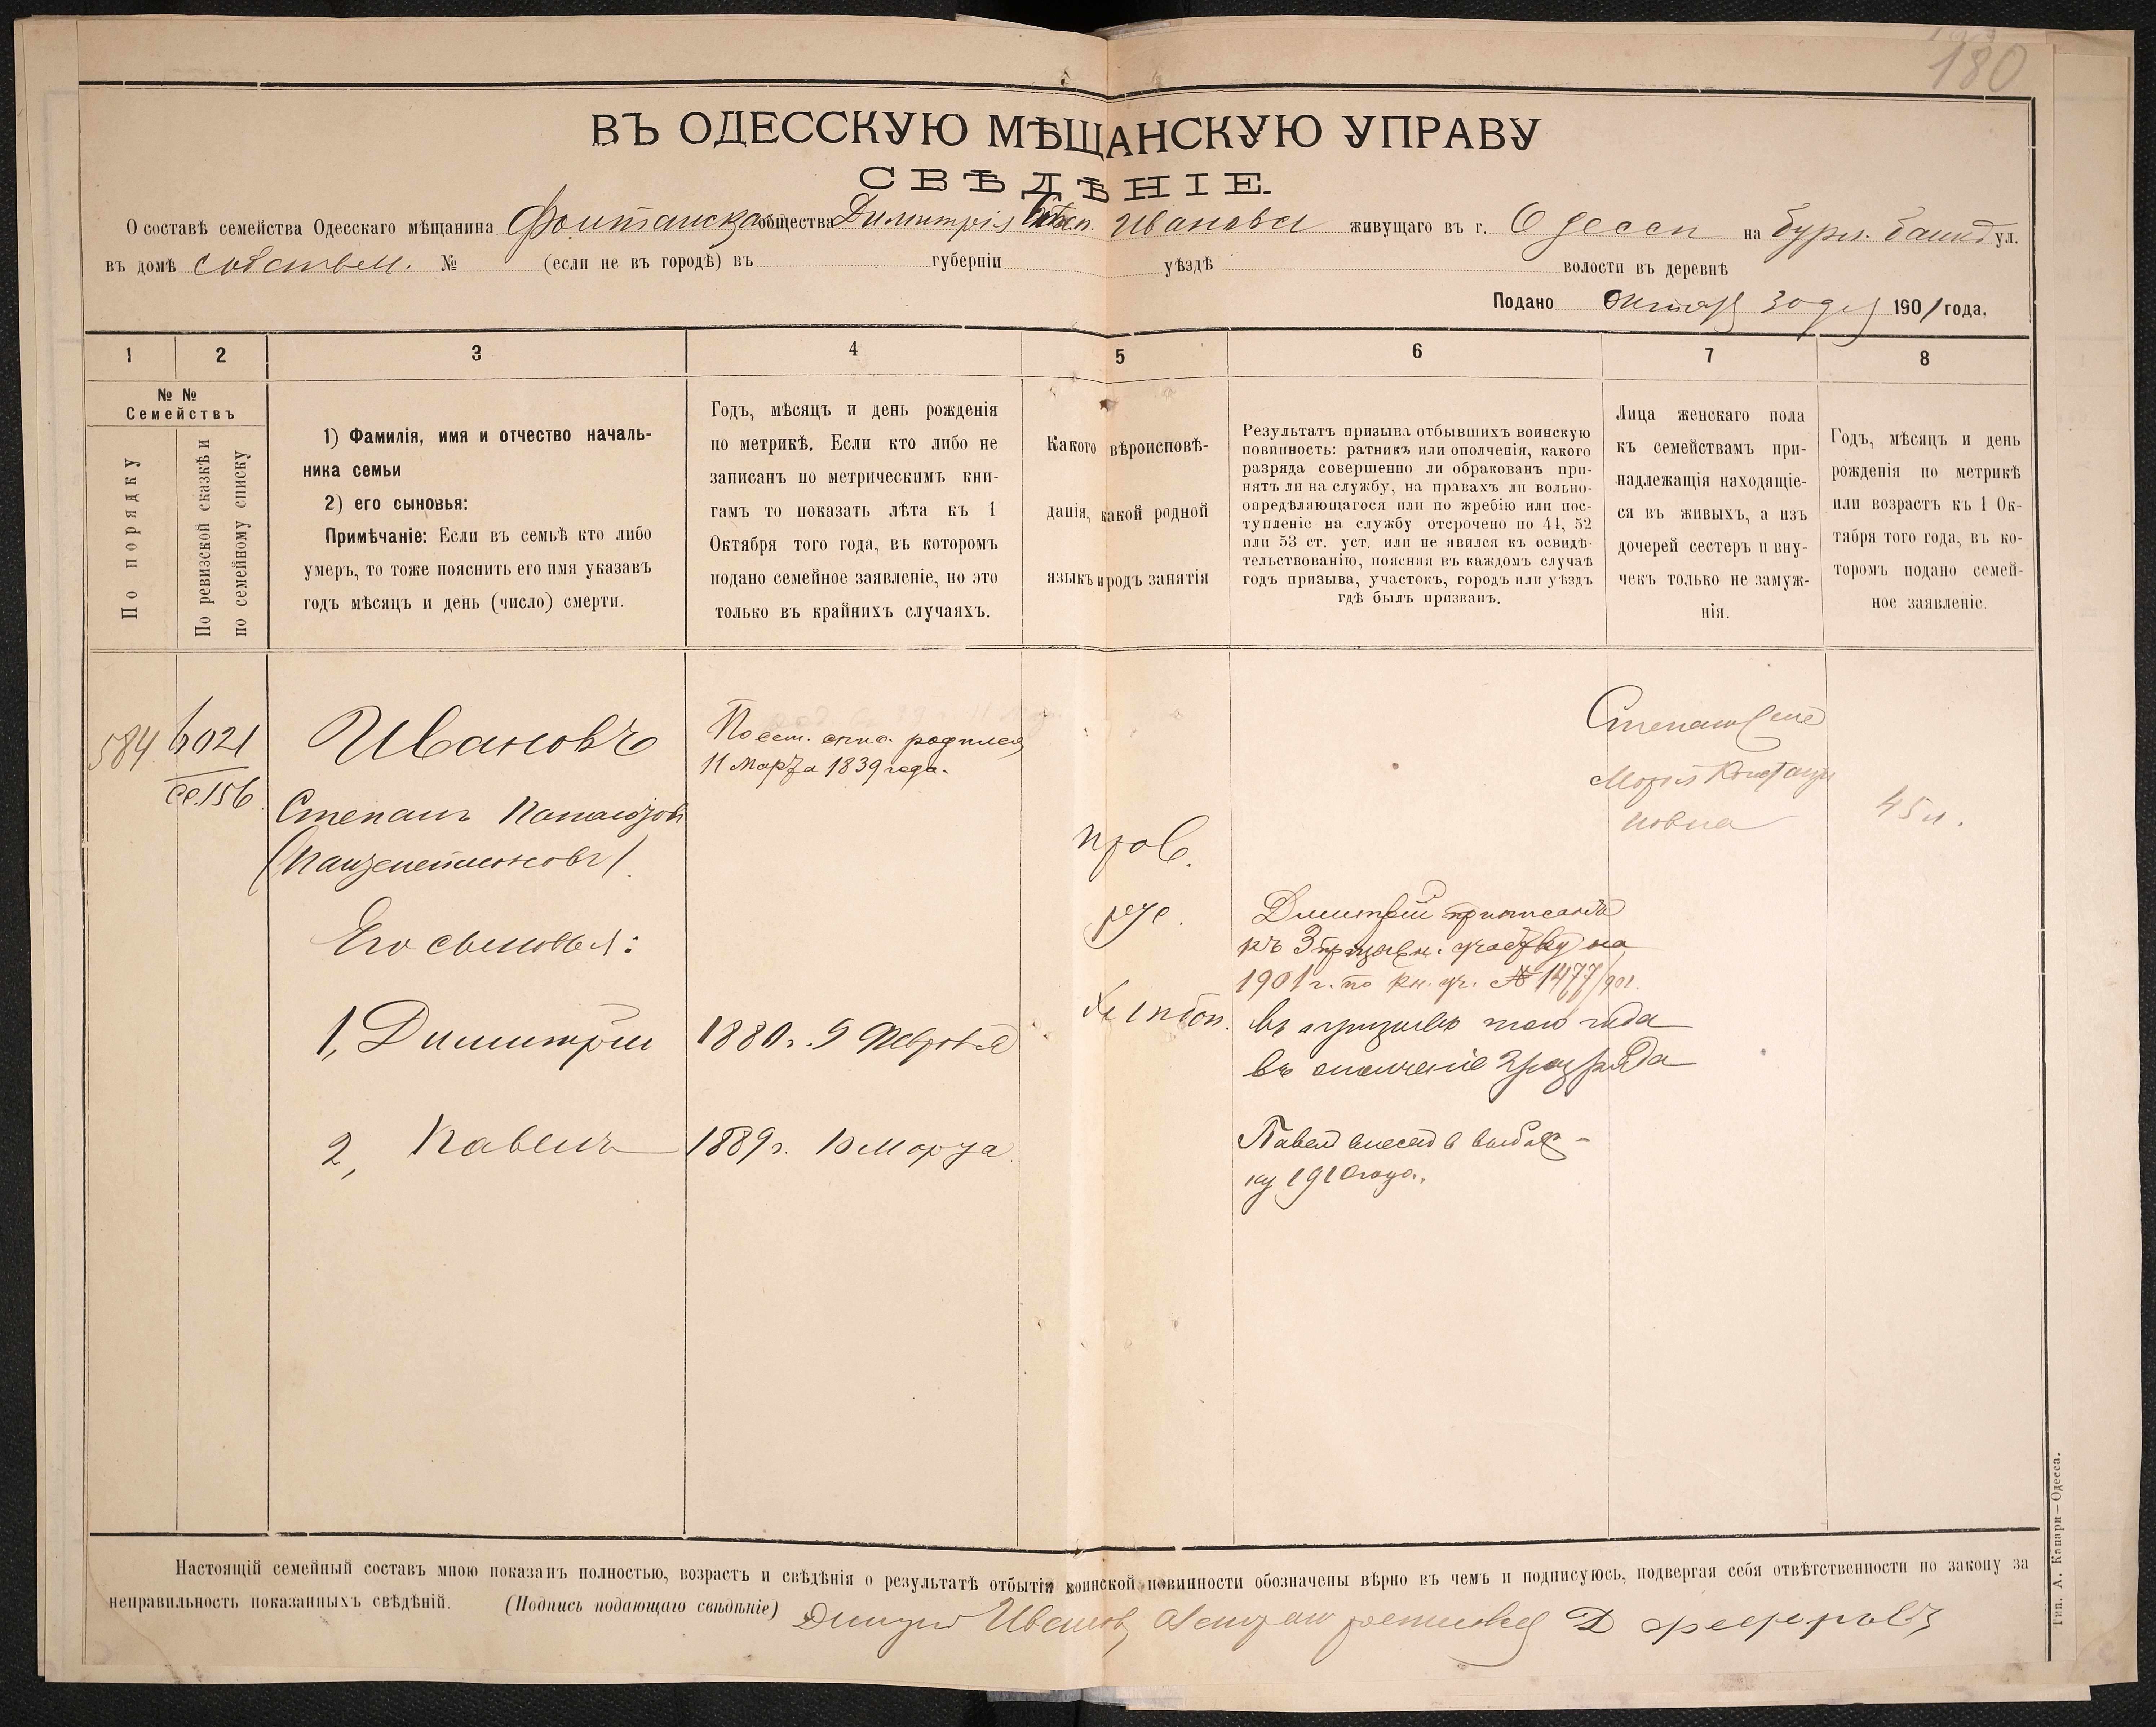 180
ВЪ ОДЕССКУЮ МѢЩАНСКУЮ УПРАВУ
СВѢДѢНІЕ.
О составѣ семейства Одесскаго мѣщанина Фонтанска общества Димитрія Степ. Иванова живущаго въ г. Одессѣ на ул.
въ домѣ собствен. № (если не въ городѣ) въ губерніи уѣздѣ волости въ деревнѣ
Подано Октября 30 дня 1901 года.
1 2 3 4 5 6 7 8
№ №
Семействъ
По порядку
По ревизской сказкѣ и
по семейному списку
1) Фамилія, имя и отчество началь-
ника семьи
2) его сыновья:
Примѣчаніе: Если въ семьѣ кто либо
умеръ, то тоже пояснить его имя указавъ
годъ мѣсяцъ и день (число) смерти.
Годъ, мѣсяцъ и день рожденія
по метрикѣ. Если кто либо не
записанъ по метрическимъ кни-
гамъ то показать лѣта къ 1
Октября того года, въ которомъ
подано семейное заявленіе, но это
только въ крайнихъ случаяхъ.
Какого вѣроисповѣ-
данія, какой родной
языкъ и родъ занятія
Результатъ призыва отбывшихъ воинскую
повинность: ратникъ или ополченія, какого
разряда совершенно ли обракованъ при-
нятъ ли на службу, на правахъ ли вольно-
опредѣляющагося или по жребію или пос-
тупленіе на службу отсрочено по 44, 52
или 53 ст. уст. или не явился къ освидѣ-
тельствованію, поясняя въ каждомъ случаѣ
годъ призыва, участокъ, городъ или уѣздъ
гдѣ былъ призванъ.
Лица женскаго пола
къ семействамъ при-
надлежащія находящіе-
ся въ живыхъ, а изъ
дочерей сестеръ и вну-
чекъ только не замуж-
нія.
Годъ, мѣсяцъ и день
рожденія по метрикѣ
или возрастъ къ 1 Ок-
тября того года, въ ко-
торомъ подано семей-
ное заявленіе.
584 6021
сс. 156
Ивановъ
Степанъ
По сем. спис. родился
11 Марта 1839 года.
Степан
Марія Констан
новна
45 л.
прав.
рус.
хлѣбоп.
Его сыновья:
1, Димитрій 1880 г. 9 Февраля
2, Павелъ 1889 г. 10 Марта
Дмитрій приписанъ
къ 3 призывн. участку на
1901 г. по кн. уч. № 1477/901.
въ призывъ того года
въ ополченіе 2 разряда
Павел внесен в выбор-
ку 1910 года.
Настоящій семейный составъ мною показанъ полностью, возрастъ и свѣдѣнія о результатѣ отбытія воинской повинности обозначены вѣрно въ чемъ и подписуюсь, подвергая себя отвѣтственности по закону за
неправильность показанныхъ свѣдѣній. (Подпись подающаго свѣдѣніе) Иванов
Тип. А. Капари—Одесса.